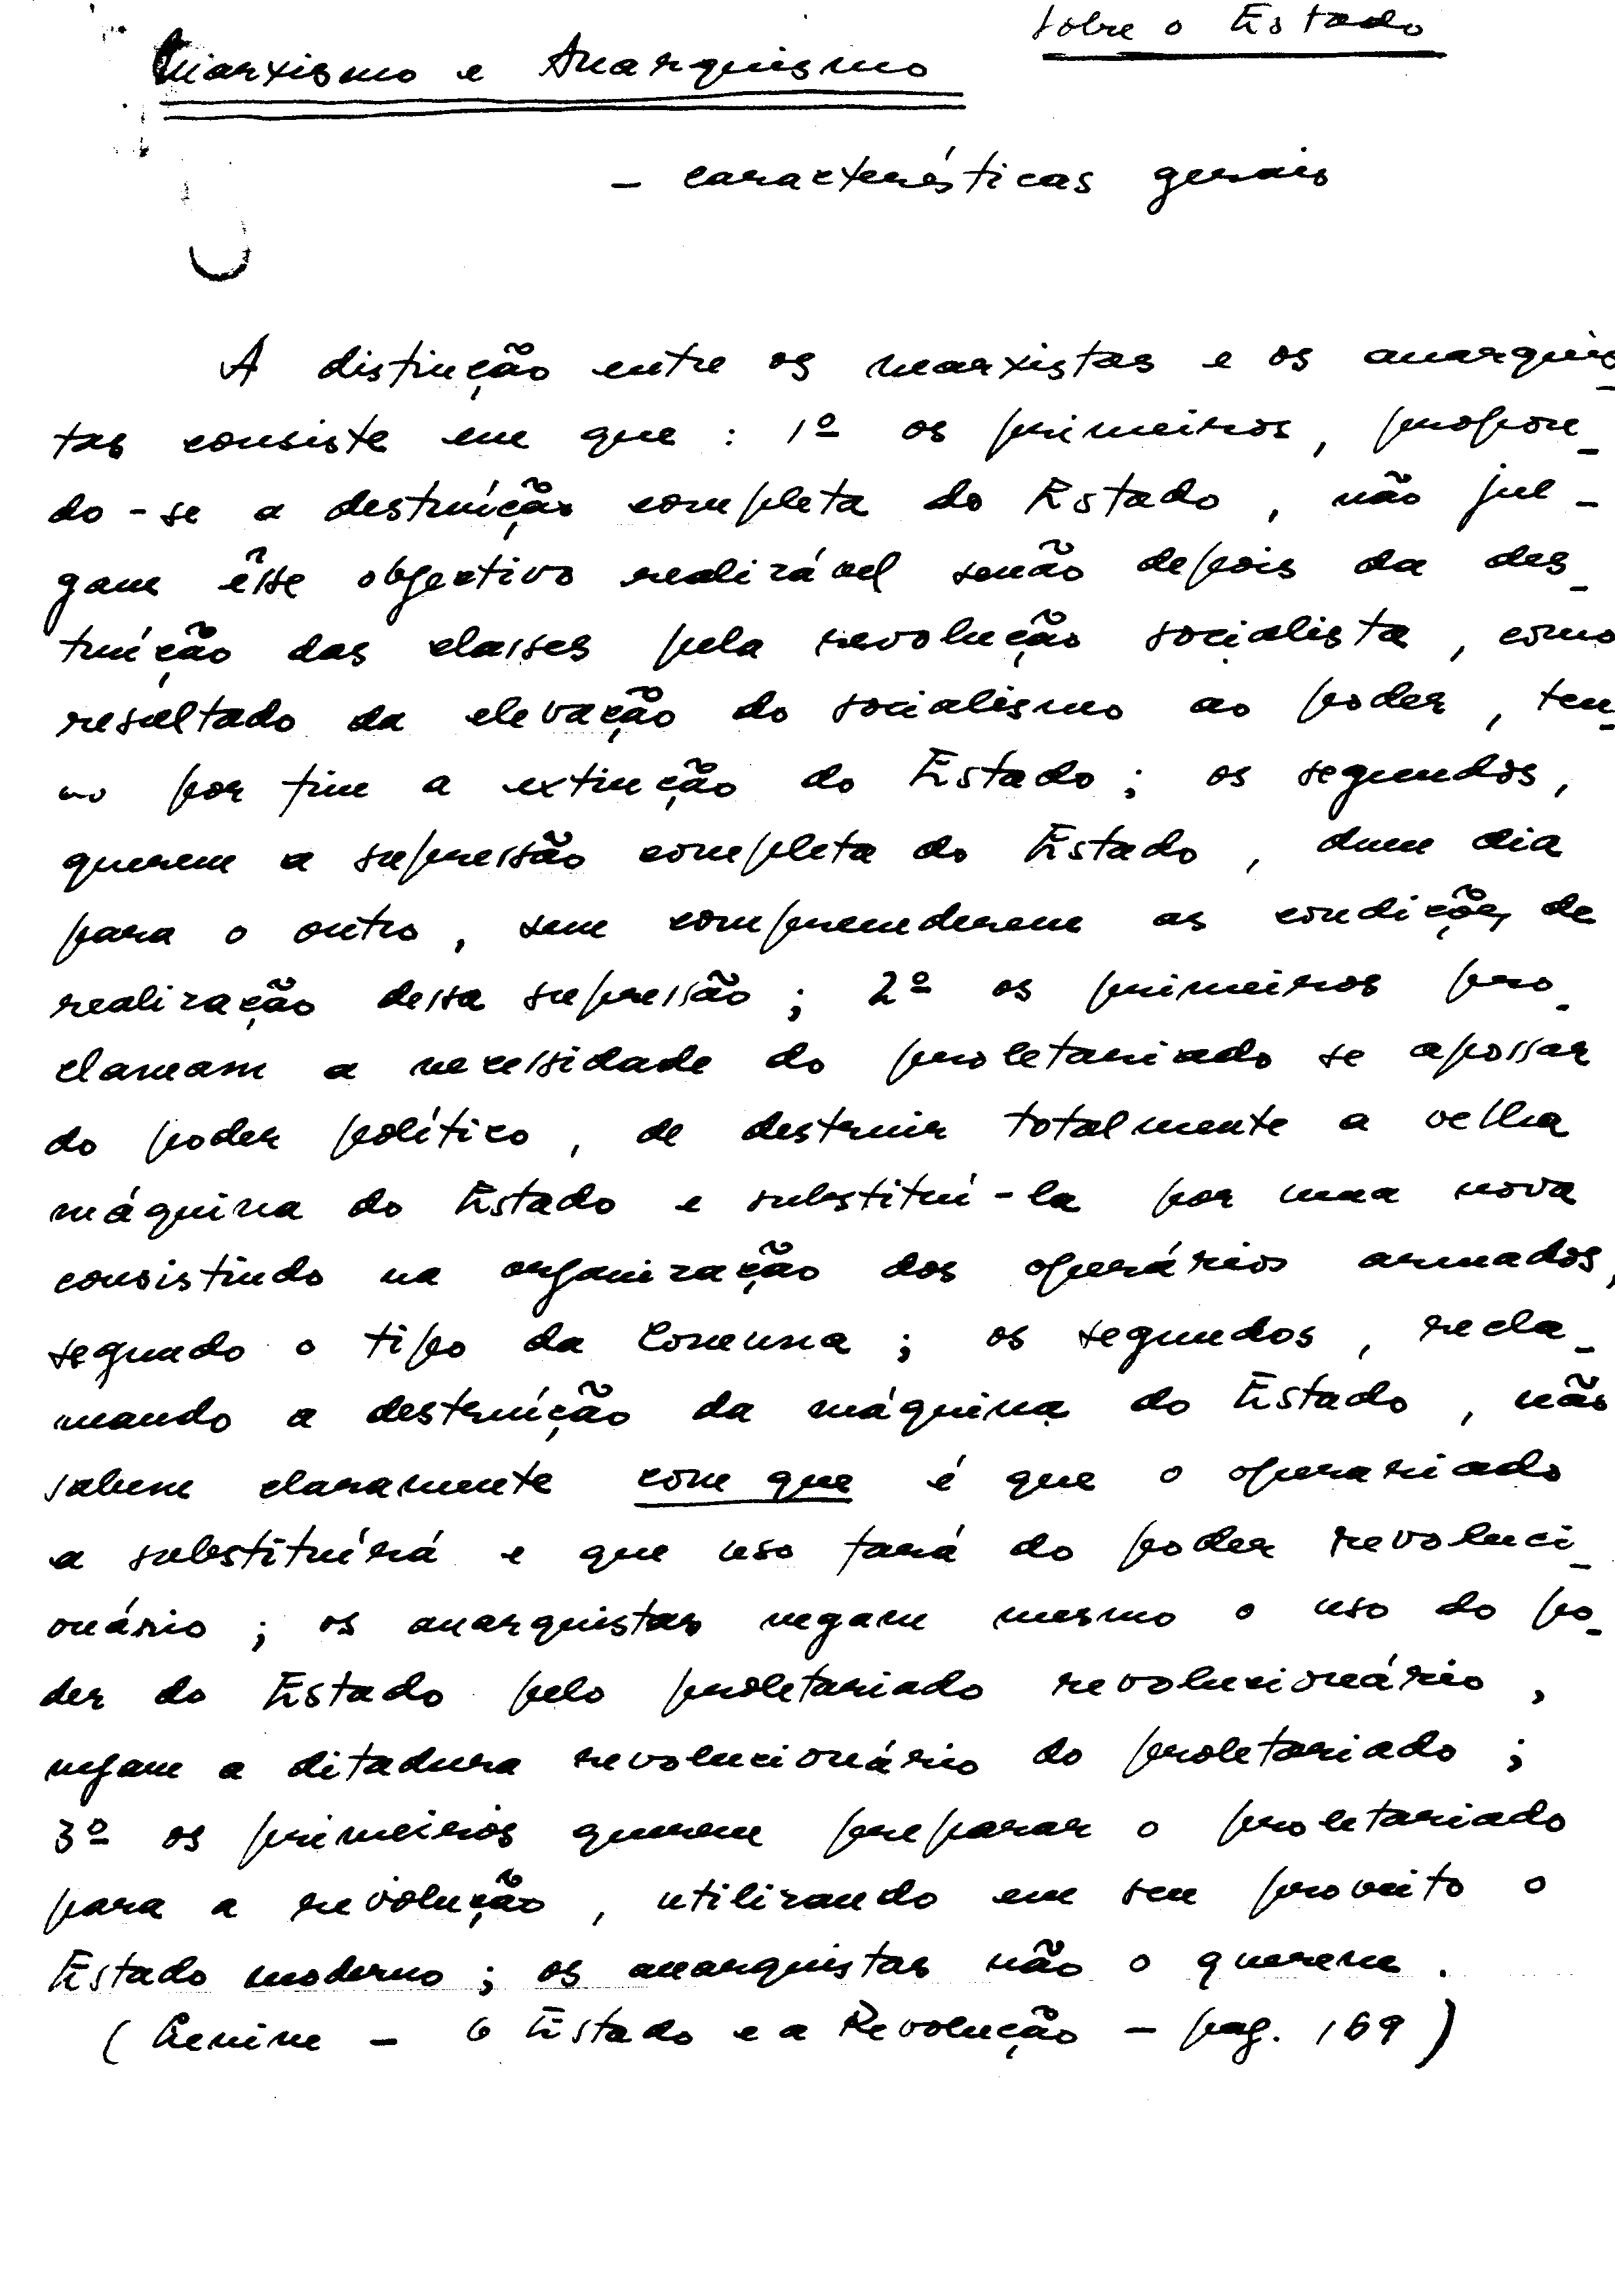 sobre o Estado
Marxismo e Anarquismo
- características gerais
A distinção entre os marxistas e os anarquis
tas consiste em que : 1º os primeiros, propon-
do-se a destruíção completa do Estado, não jul-
gam êsse objectivo realizável senão depois da des-
truíção das classes pela revolução socialista, como
resultado da elevação do socialismo ao poder, ten-
do por fim a extinção do Estado; os segundos,
querem a supressão completa do Estado, dum dia
para o outro, sem compreenderem as condições de
realização dessa supressão; 2º os primeiros pro-
clamam a necessidade do proletariado se apossar
do poder político, de destruir totalmente a velha
máquina do Estado e substituí-la por uma nova
consistindo na organização dos operários armados,
segundo o tipo da Comuna; os segundos, recla-
mando a destruíção da máquina do Estado, não
sabem claramente com que é que o operariado
a substituírá e que uso fará do poder revoluci-
onário; os anarquistas negam mesmo o uso do po-
der do Estado pelo proletariado revolucionário,
negam a ditadura revolucionário do proletariado;
3º os primeiros querem preparar o proletariado
para a revolução, utilizando em seu proveito o
Estado moderno; os anarquistas não o querem.
(Lenine - O Estado e a Revolução - pag. 169)